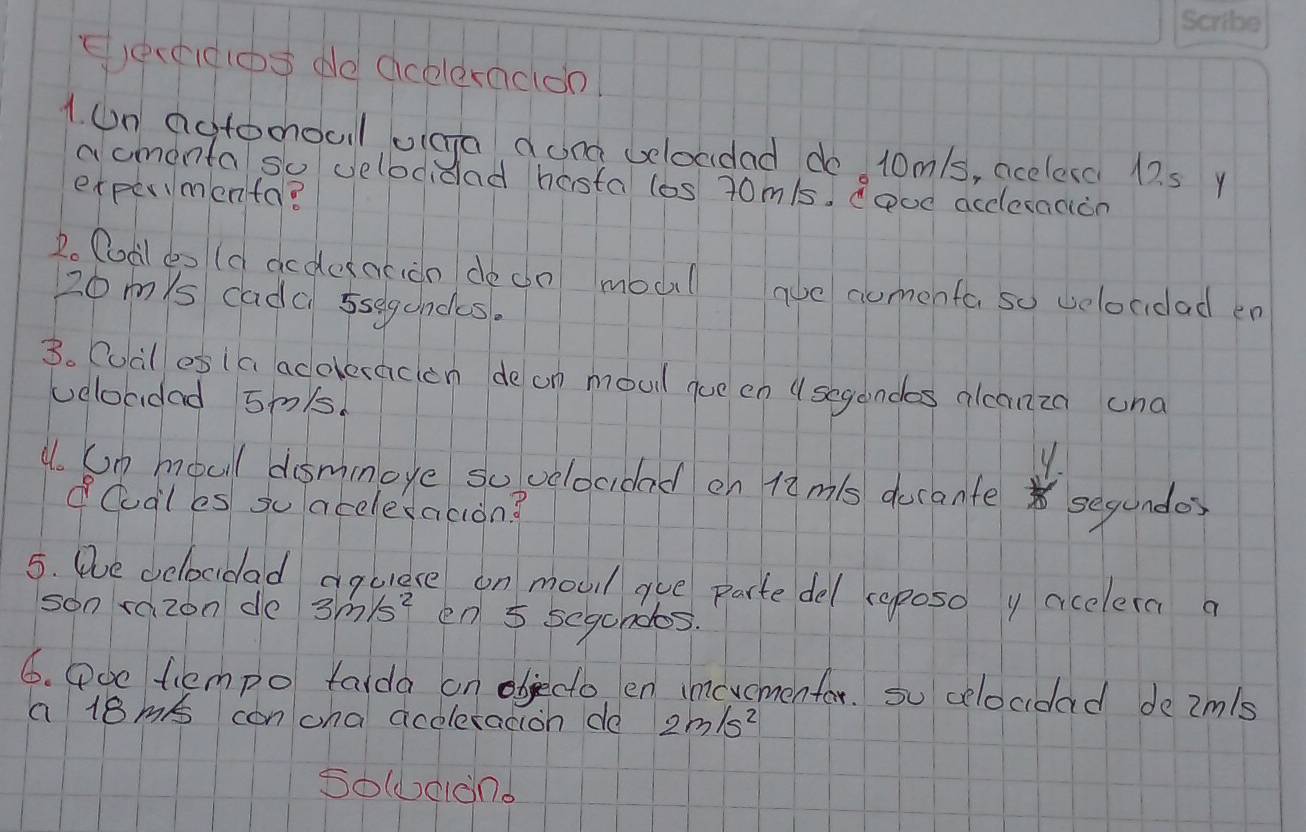 Scribe
Ejercicios de aceleración.
1. Un automovil viaja a una velocidad de 10m/s, acelera 12s y
aumenta su velocidad hasta los 70m/s. ¿Que aceleración
experimenta?
2. Cuál es la aceleración de un movil que aumenta su velocidad en
20 m/s cada 5segundos.
3. Cuál es la aceleración de un movil que en 4 segundos alcanza una
velocidad 5m/s.
4. Un movil disminuye su velocidad en 12m/s durante 4. segundos
¿Cuál es su aceleración?
5. Que velocidad aquiere un movil que parte del reposo y acelera a
son razon de 3m/s² en 5 segundos.
6. Que tiempo tarda un objecto en incrementar. su velocidad de 2m/s
a 18 m/s con una aceleración de 2m/s²
Solución.